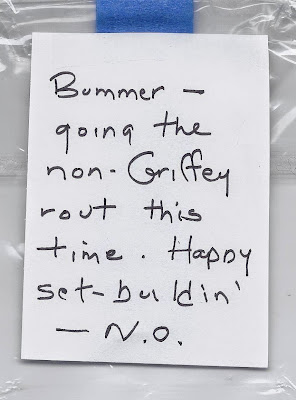 Bummer —
going the
non-Griffey
rout this
time. Happy
set-buildin'
— N.O.